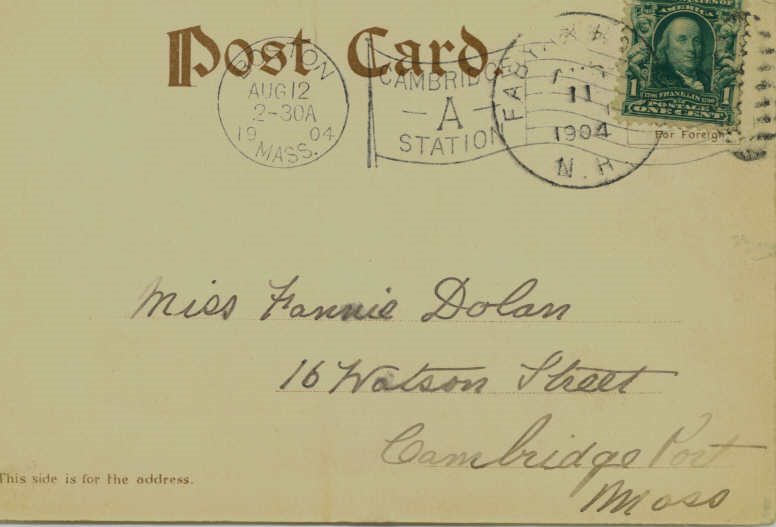 Post Card.
BOSTON
AUG 12
2-30A
19 04
MASS.
CAMBRIDGE
A
STATION
11
1904
N.H.
STATES OF
AMERICA
1 FRANKLIN 1
POSTAGE
ONE CENT
For Foreign
Miss Fannie Dolan
16 Watson Street
Cambridge Port
Mass
This side is for the address.